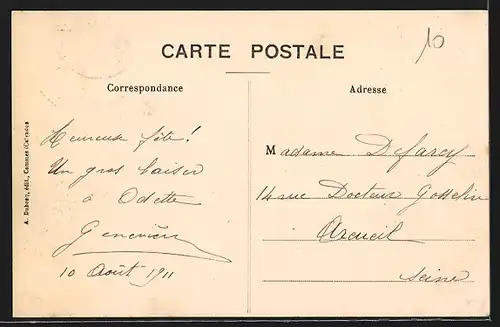 10
CARTE POSTALE
Correspondance
Adresse
Heureuse fête!
Un gros baiser
à Odette
Geneviève
10 Août 1911
Madame Defarcy
14 rue Docteur Gosselin
Arcueil
Seine
A. Dubosq, édit., Commes (Calvados